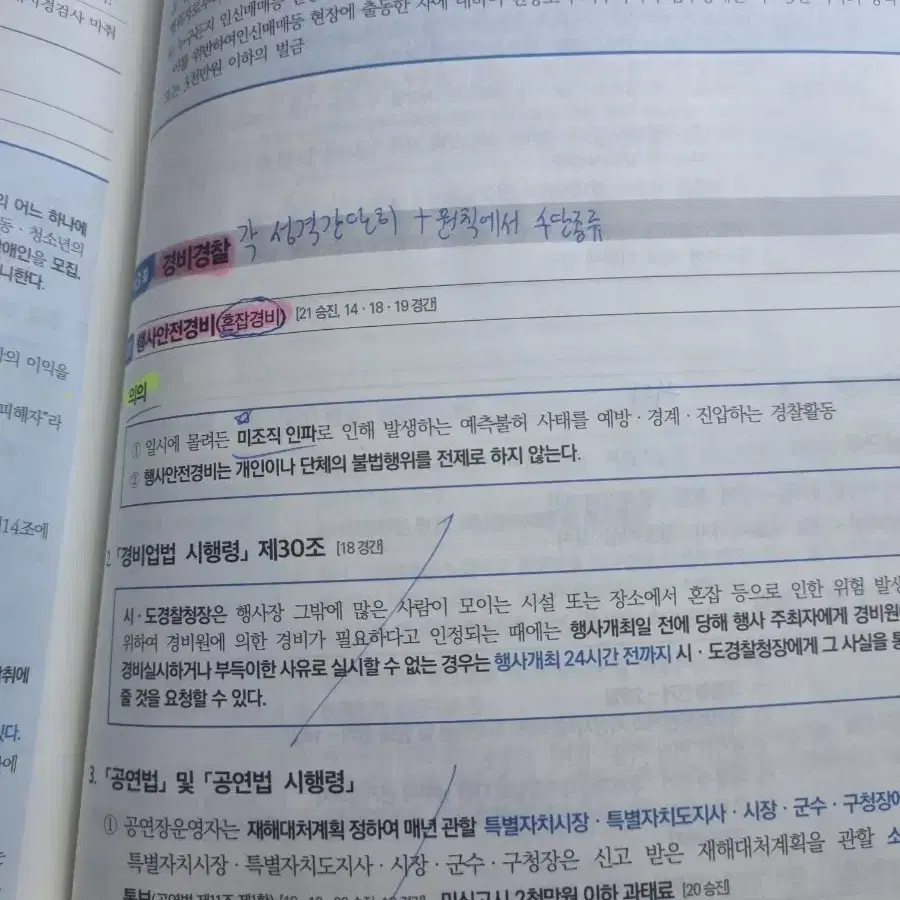 시경검사 마취
누구든지 인신매매등 현장에 출동한 자에 대하여
이를 위반하여 인신매매등
또는 3천만원 이하의 벌금
의 어느 하나에
동·청소년의
애인을 모집,
니한다.
사의 이익을
피해자"라
14조에
취에
있다.
에
경비경찰 각 성격간단히 + 원칙에서 수단종류
행사안전경비(혼잡경비) [21 승진, 14·18·19 경간]
의의
① 일시에 몰려든 미조직 인파로 인해 발생하는 예측불허 사태를 예방·경계·진압하는 경찰활동
② 행사안전경비는 개인이나 단체의 불법행위를 전제로 하지 않는다.
2. 「경비업법 시행령」 제30조 [18 경간]
시·도경찰청장은 행사장 그밖에 많은 사람이 모이는 시설 또는 장소에서 혼잡 등으로 인한 위험 발생
위하여 경비원에 의한 경비가 필요하다고 인정되는 때에는 행사개최일 전에 당해 행사 주최자에게 경비원
경비실시하거나 부득이한 사유로 실시할 수 없는 경우는 행사개최 24시간 전까지 시·도경찰청장에게 그 사실을 통
줄 것을 요청할 수 있다.
3. 「공연법」 및 「공연법 시행령」
① 공연장운영자는 재해대처계획 정하여 매년 관할 특별자치시장·특별자치도지사·시장·군수·구청장에
특별자치시장·특별자치도지사·시장·군수·구청장은 신고 받은 재해대처계획을 관할 소
통보(공연법 제11조 제1항) 미신고시 2천만원 이하 과태료 [20 승진]